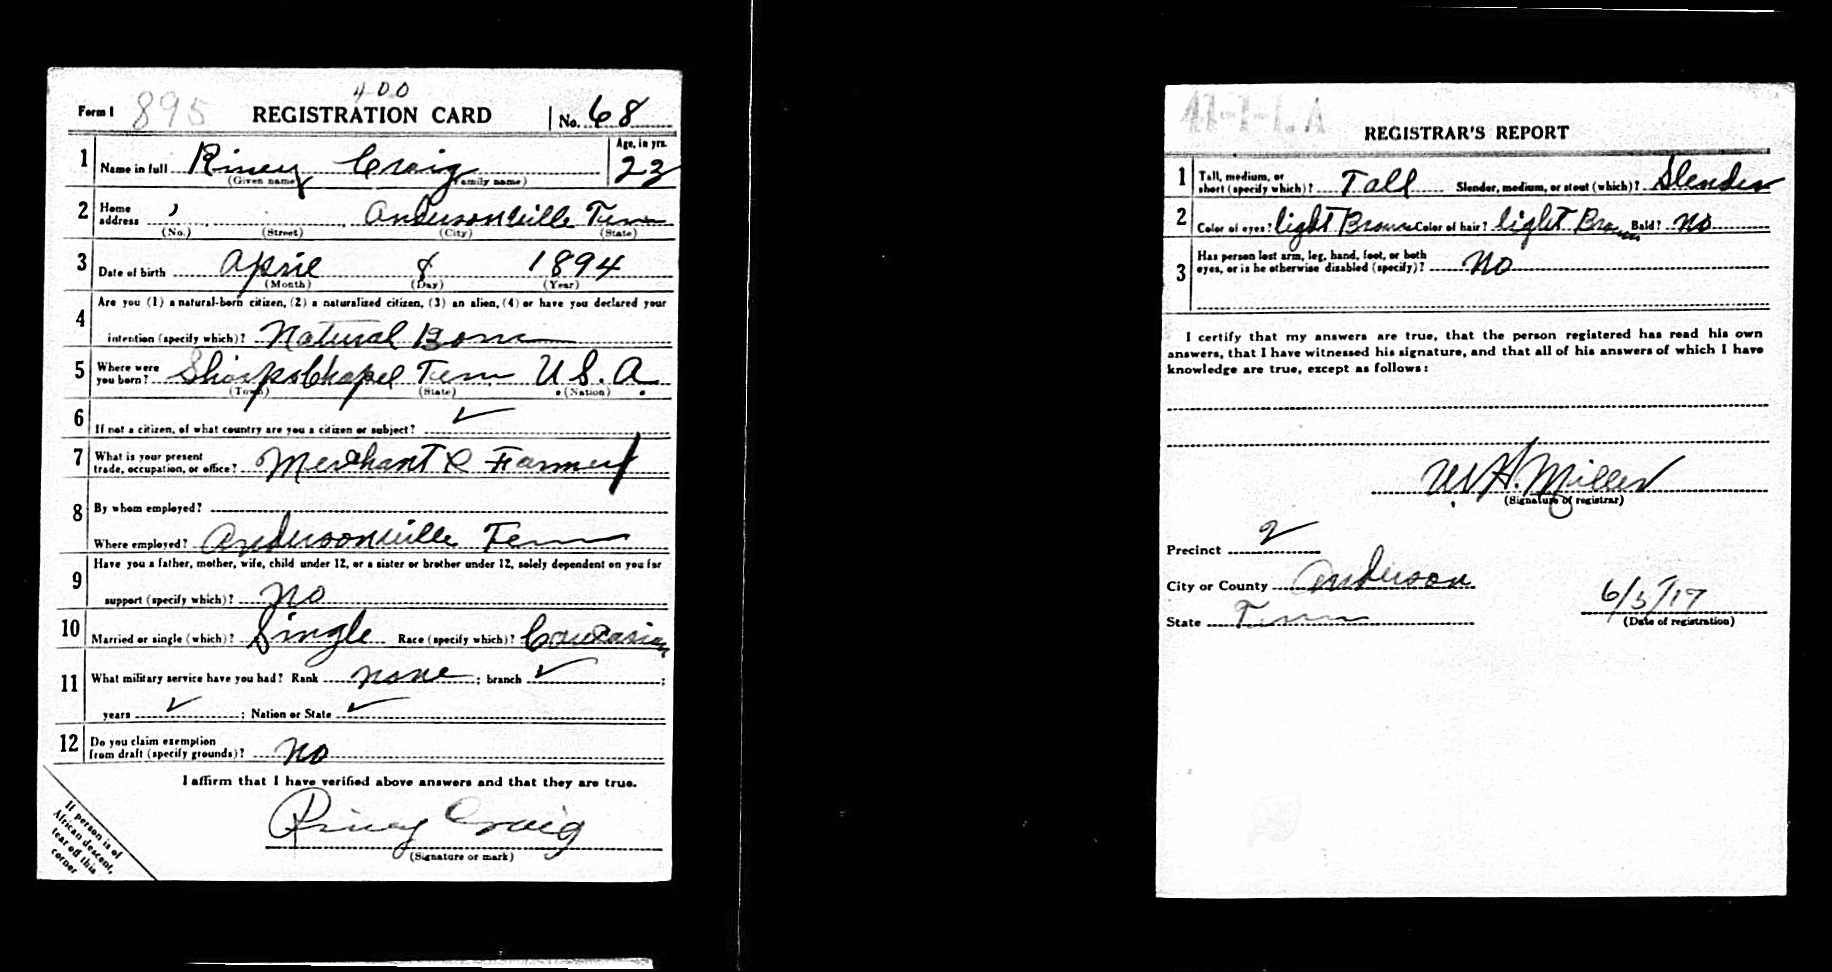 400
Form 1 895 REGISTRATION CARD No. 68
1 Name in full Riney Craig Age, in yrs. 23
(Given name) (Family name)
2 Home address Andersonville Tenn
(No.) (Street) (City) (State)
3 Date of birth April 8 1894
(Month) (Day) (Year)
4 Are you (1) a natural-born citizen, (2) a naturalized citizen, (3) an alien, (4) or have you declared your
intention (specify which)? Natural Born
5 Where were you born? Sharps Chapel Tenn U S. A
(Town) (State) (Nation)
6 If not a citizen, of what country are you a citizen or subject? ✓
7 What is your present trade, occupation, or office? Merchant & Farmer
8 By whom employed?
Where employed? Andersonville Tenn
9 Have you a father, mother, wife, child under 12, or a sister or brother under 12, solely dependent on you for
support (specify which)? No
10 Married or single (which)? Single Race (specify which)? Caucasian
11 What military service have you had? Rank none ; branch ✓ ;
years ✓ ; Nation or State ✓
12 Do you claim exemption from draft (specify grounds)? No
I affirm that I have verified above answers and that they are true.
Riney Craig
(Signature or mark)
If person is of
African descent,
tear off this
corner
REGISTRAR'S REPORT
1 Tall, medium, or short (specify which)? Tall Slender, medium, or stout (which)? Slender
2 Color of eyes? light Brown Color of hair? light Brown Bald? No
3 Has person lost arm, leg, hand, foot, or both eyes, or is he otherwise disabled (specify)? No
I certify that my answers are true, that the person registered has read his own
answers, that I have witnessed his signature, and that all of his answers of which I have
knowledge are true, except as follows:
W H. Miller
(Signature of registrar)
Precinct 2
City or County Anderson
State Tenn
6/5/17
(Date of registration)